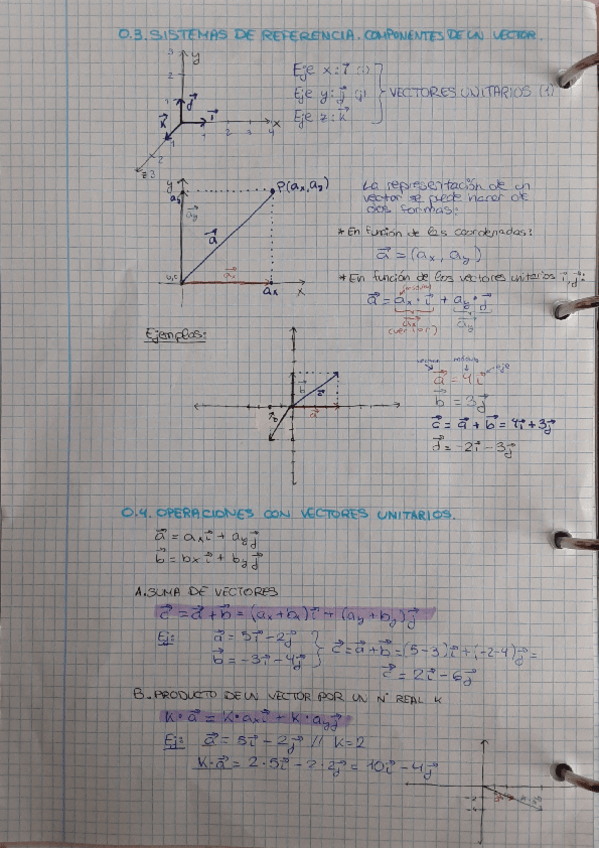 0.3. SISTEMAS DE REFERENCIA. COMPONENTES DE UN VECTOR.
3
y
2
1
j⃗
i⃗
k⃗
1 2 3 4 x
1
2
z 3
Eje x: i⃗ (i)
Eje y: j⃗ (j)
Eje z: k⃗
VECTORES UNITARIOS (1)
y
a_y
a⃗_y
P(a_x, a_y)
a⃗
a⃗_x
a_x
x
La representación de un
vector se puede hacer de
dos formas:
* En función de las coordenadas:
a⃗ = (a_x, a_y)
* En función de los vectores unitarios i⃗, j⃗:
a⃗ = a_x · i⃗ + a_y · j⃗
a⃗_x
a⃗_y
(vector)
Ejemplos:
b⃗
c⃗
a⃗
módulo
eje
a⃗ = 4i⃗
b⃗ = 3j⃗
c⃗ = a⃗ + b⃗ = 4i⃗ + 3j⃗
d⃗ = -2i⃗ - 3j⃗
0.4. OPERACIONES CON VECTORES UNITARIOS.
a⃗ = a_x i⃗ + a_y j⃗
b⃗ = b_x i⃗ + b_y j⃗
A. SUMA DE VECTORES
c⃗ = a⃗ + b⃗ = (a_x + b_x) i⃗ + (a_y + b_y) j⃗
Ej: a⃗ = 5i⃗ - 2j⃗
b⃗ = -3i⃗ - 4j⃗
c⃗ = a⃗ + b⃗ = (5-3) i⃗ + (-2-4) j⃗ =
c⃗ = 2i⃗ - 6j⃗
B. PRODUCTO DE UN VECTOR POR UN Nº REAL K
K · a⃗ = K · a_x i⃗ + K · a_y j⃗
Ej: a⃗ = 5i⃗ - 2j⃗ // K=2
K · a⃗ = 2 · 5i⃗ - 2 · 2j⃗ = 10i⃗ - 4j⃗
-2
-4